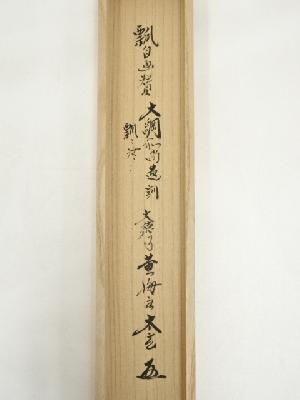 瓢自画賛 大綱和尚遺訓
瓢々
大徳寺黄梅院太玄